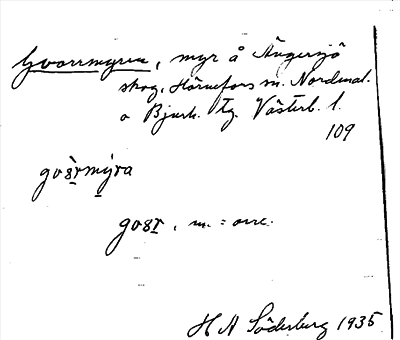 Gvorrmyren, myr å Ängersjö
skog, Hörnefors sn. Nordmal.
o Bjurh. tg. Västerb. l.
109
m. = orre.
H A Söderberg 1935